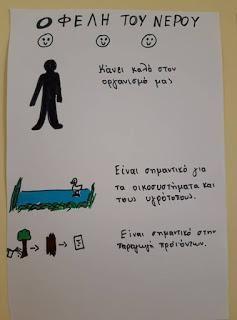 ΟΦΕΛΗ ΤΟΥ ΝΕΡΟΥ
Κάνει καλό στον
οργανισμό μας
Είναι σημαντικό για
τα οικοσυστήματα και
τους υγρότοπους.
Είναι σημαντικό στην
παραγωγή προϊόντων.